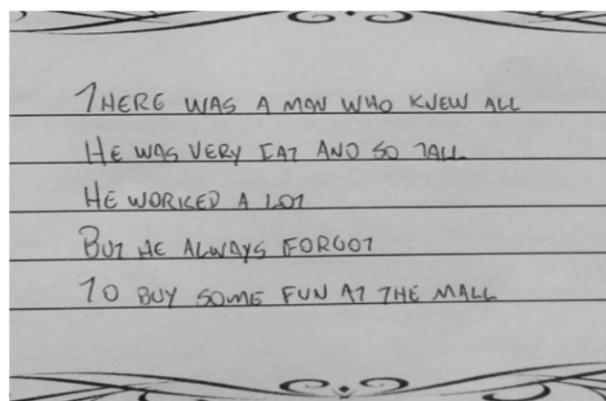 THERE WAS A MAN WHO KNEW ALL
HE WAS VERY FAT AND SO TALL
HE WORKED A LOT
BUT HE ALWAYS FORGOT
TO BUY SOME FUN AT THE MALL